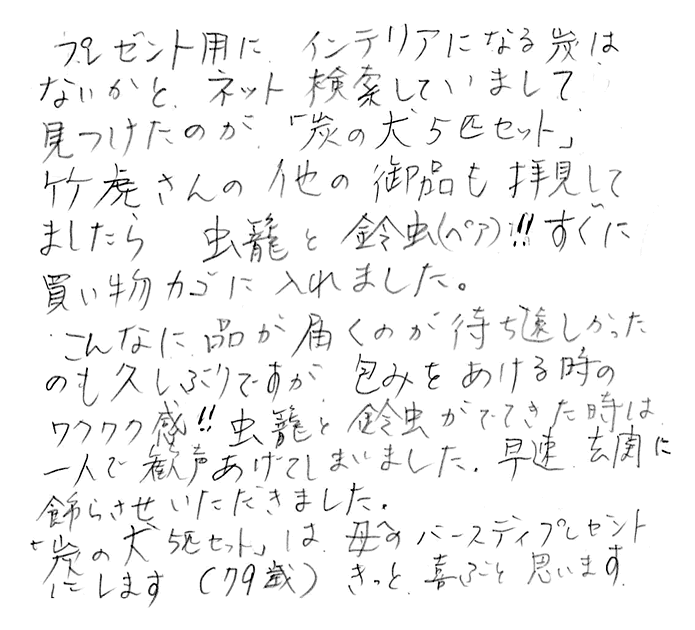 プレゼント用に インテリアになる炭は
ないかと、ネット検索していまして
見つけたのが、「炭の犬5匹セット」
竹虎さんの他の御品も拝見して
ましたら 虫籠と鈴虫(ペア)!!すぐに
買い物カゴに入れました。
こんなに品が届くのが待ち遠しかった
のも久しぶりですが、包みをあける時の
ワクワク感!!虫籠と鈴虫がでてきた時は
一人で歓声あげてしまいました。早速、玄関に
飾らさせいただきました。
「炭の犬5匹セット」は、母へのバースディプレゼント
にします(79歳)きっと、喜ぶと思います。